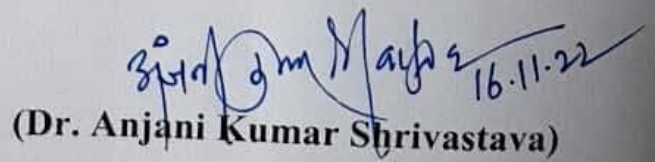 16.11.22
(Dr. Anjani Kumar Shrivastava)